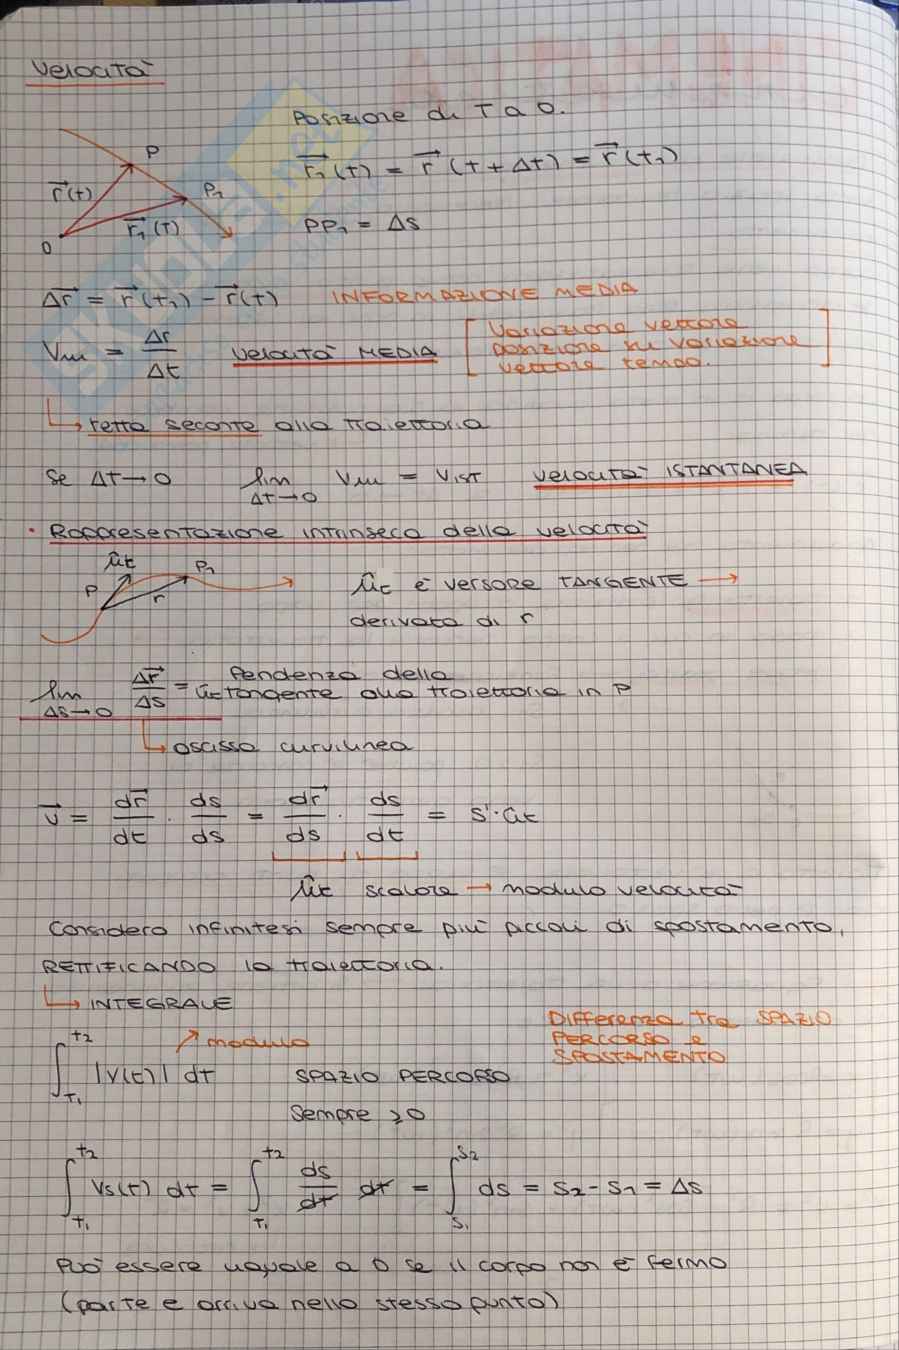 Velocità
Posizione di T a O.
P
r⃗(t)
P₁
r⃗₁(t)
O
r⃗₁(t) = r⃗(t + Δt) = r⃗(t₁)
PP₁ = Δs
Δr⃗ = r⃗(t₁) - r⃗(t) INFORMAZIONE MEDIA
Vm = Δr/Δt velocità MEDIA
[Variazione vettore
posizione su variazione
vettore tempo.]
↳ retta secante alla traiettoria
Se Δt→0 lim Δt→0 Vm = VIST velocità ISTANTANEA
· Rappresentazione intrinseca della velocità
ût
P
P₁
r
ût è versore TANGENTE →
derivata di r
lim Δs→0 Δr⃗/Δs = Pendenza della
ût tangente alla traiettoria in P
↳ ascissa curvilinea
v⃗ = dr⃗/dt · ds/ds = dr⃗/ds · ds/dt = s' · ût
ût scalare → modulo velocità
Considero infinitesi sempre più piccoli di spostamento,
RETTIFICANDO la traiettoria.
↳ INTEGRALE
↗ modulo
Differenza tra SPAZIO
PERCORSO e
SPOSTAMENTO
∫T₁^t2 |V(t)| dt SPAZIO PERCORSO
Sempre ≥0
∫T₁^t2 Vs(t) dt = ∫T₁^t2 ds/dt dt = ∫S₁^S2 ds = S2 - S1 = Δs
Può essere uguale a 0 se il corpo non è fermo
(parte e arriva nello stesso punto)
SKUOLA.net